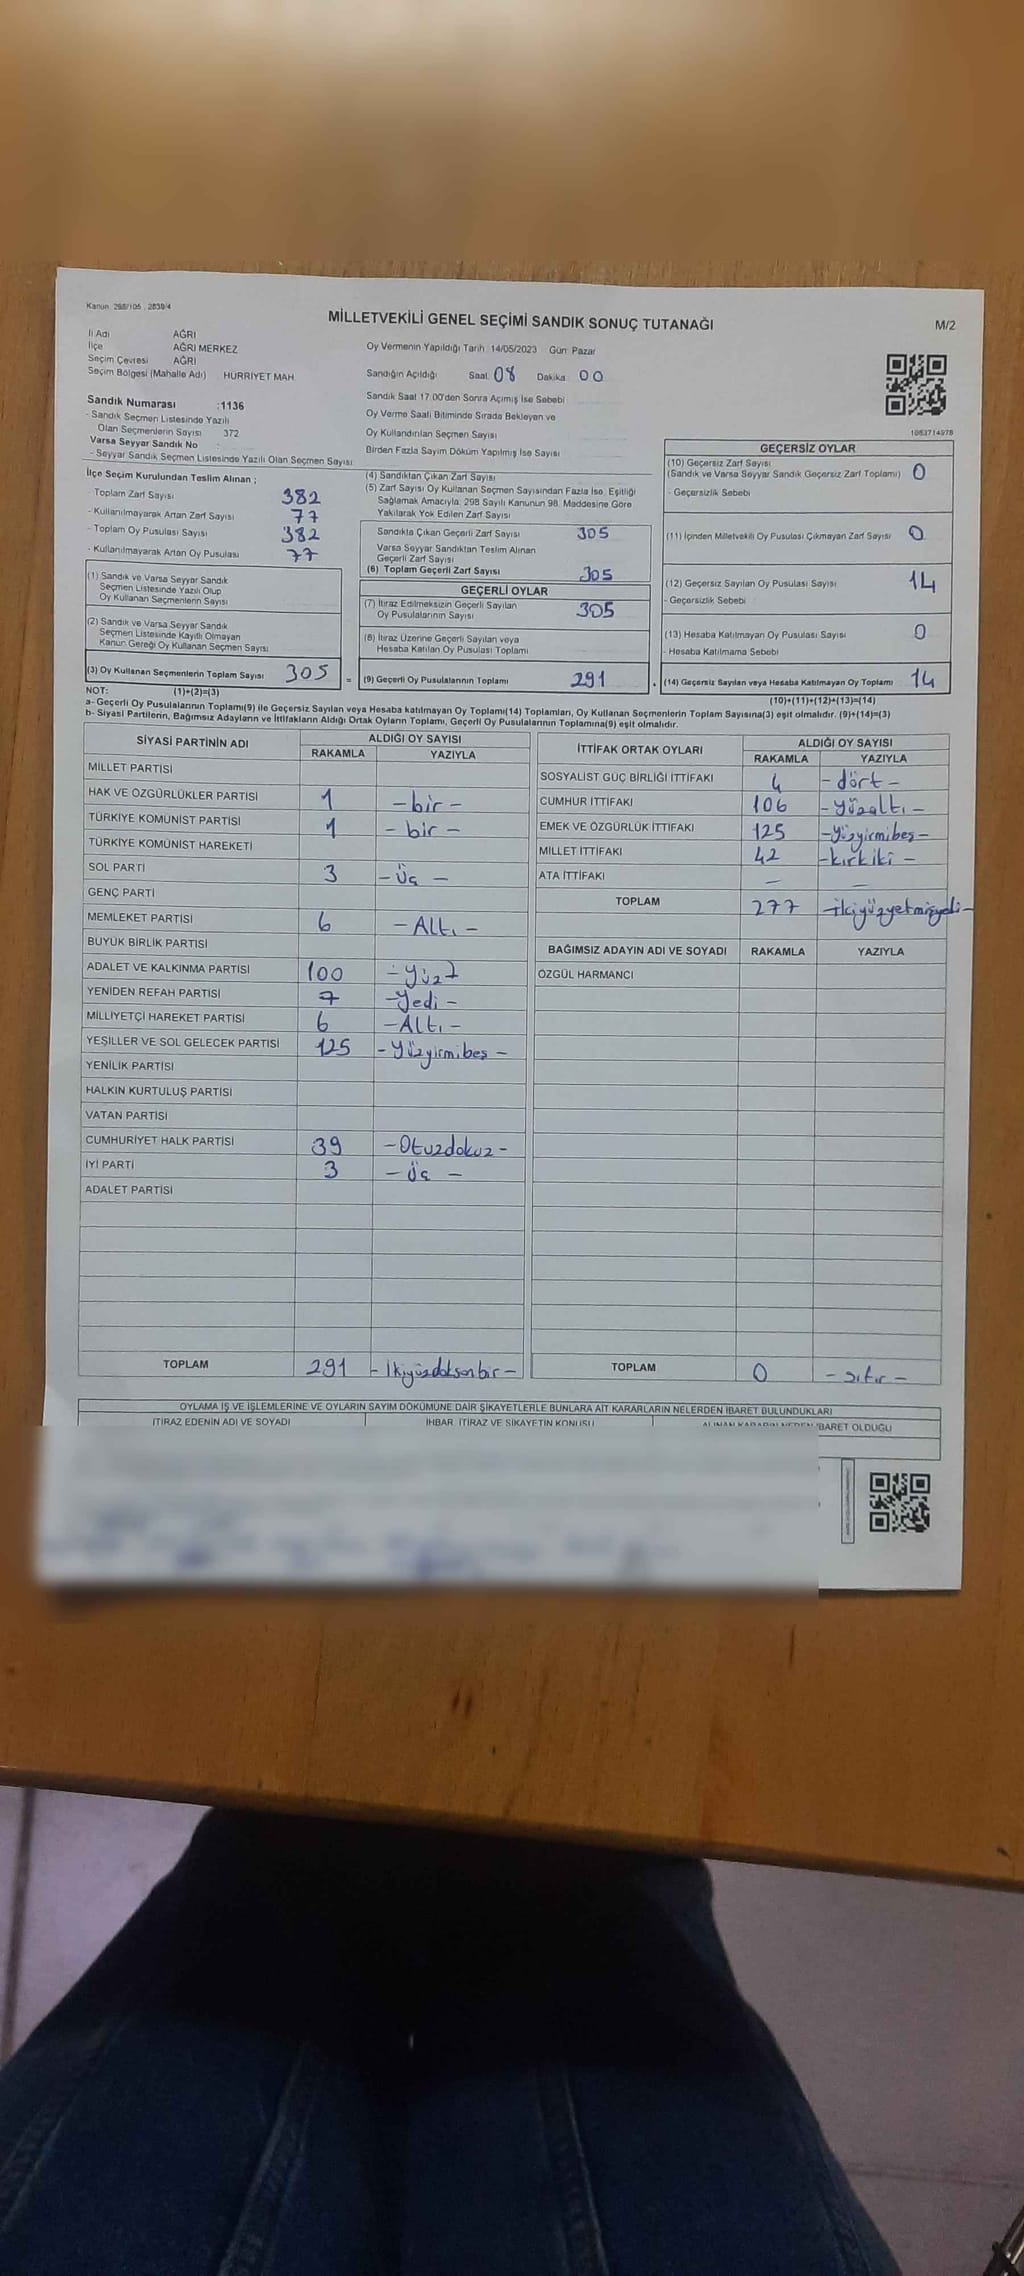 Kanun 298/105 , 2839/4
MİLLETVEKİLİ GENEL SEÇİMİ SANDIK SONUÇ TUTANAĞI
M/2
İl Adı AĞRI
İlçe AĞRI MERKEZ
Seçim Çevresi AĞRI
Seçim Bölgesi (Mahalle Adı) HÜRRİYET MAH.
Sandık Numarası :1136
- Sandık Seçmen Listesinde Yazılı
Olan Seçmenlerin Sayısı 372
Varsa Seyyar Sandık No
- Seyyar Sandık Seçmen Listesinde Yazılı Olan Seçmen Sayısı
Oy Vermenin Yapıldığı Tarih 14/05/2023 Gün Pazar
Sandığın Açıldığı Saat 08 Dakika 00
Sandık Saat 17.00'den Sonra Açımış İse Sebebi
Oy Verme Saati Bitiminde Sırada Bekleyen ve
Oy Kullandırılan Seçmen Sayısı
Birden Fazla Sayım Döküm Yapılmış İse Sayısı
1083714978
İlçe Seçim Kurulundan Teslim Alınan ;
- Toplam Zarf Sayısı 382
- Kullanılmayarak Artan Zarf Sayısı 77
- Toplam Oy Pusulası Sayısı 382
- Kullanılmayarak Artan Oy Pusulası 77
(1) Sandık ve Varsa Seyyar Sandık
Seçmen Listesinde Yazılı Olup
Oy Kullanan Seçmenlerin Sayısı
(2) Sandık ve Varsa Seyyar Sandık
Seçmen Listesinde Kayıtlı Olmayan
Kanun Gereği Oy Kullanan Seçmen Sayısı
(3) Oy Kullanan Seçmenlerin Toplam Sayısı 305 =
(4) Sandıktan Çıkan Zarf Sayısı
(5) Zarf Sayısı Oy Kullanan Seçmen Sayısından Fazla İse, Eşitliği
Sağlamak Amacıyla, 298 Sayılı Kanunun 98. Maddesine Göre
Yakılarak Yok Edilen Zarf Sayısı
Sandıkta Çıkan Geçerli Zarf Sayısı 305
Varsa Seyyar Sandıktan Teslim Alınan
Geçerli Zarf Sayısı
(6) Toplam Geçerli Zarf Sayısı 305
GEÇERLİ OYLAR
(7) İtiraz Edilmeksizin Geçerli Sayılan
Oy Pusulalarının Sayısı 305
(8) İtiraz Üzerine Geçerli Sayılan veya
Hesaba Katılan Oy Pusulası Toplamı
(9) Geçerli Oy Pusulalarının Toplamı 291
GEÇERSİZ OYLAR
(10) Geçersiz Zarf Sayısı
(Sandık ve Varsa Seyyar Sandık Geçersiz Zarf Toplamı) 0
- Geçersizlik Sebebi
(11) İçinden Milletvekili Oy Pusulası Çıkmayan Zarf Sayısı 0
(12) Geçersiz Sayılan Oy Pusulası Sayısı 14
- Geçersizlik Sebebi
(13) Hesaba Katılmayan Oy Pusulası Sayısı 0
- Hesaba Katılmama Sebebi
(14) Geçersiz Sayılan veya Hesaba Katılmayan Oy Toplamı 14
NOT: (1)+(2)=(3)
(10)+(11)+(12)+(13)=(14)
a- Geçerli Oy Pusulalarının Toplamı(9) ile Geçersiz Sayılan veya Hesaba katılmayan Oy Toplamı(14) Toplamları, Oy Kullanan Seçmenlerin Toplam Sayısına(3) eşit olmalıdır. (9)+(14)=(3)
b- Siyasi Partilerin, Bağımsız Adayların ve İttifakların Aldığı Ortak Oyların Toplamı, Geçerli Oy Pusulalarının Toplamına(9) eşit olmalıdır.
SİYASİ PARTİNİN ADI ALDIĞI OY SAYISI
RAKAMLA YAZIYLA
MİLLET PARTİSİ
HAK VE ÖZGÜRLÜKLER PARTİSİ 1 - bir -
TÜRKİYE KOMÜNİST PARTİSİ 1 - bir -
TÜRKİYE KOMÜNİST HAREKETİ
SOL PARTİ 3 - Üç -
GENÇ PARTİ
MEMLEKET PARTİSİ 6 - Altı -
BÜYÜK BİRLİK PARTİSİ
ADALET VE KALKINMA PARTİSİ 100 - Yüz -
YENİDEN REFAH PARTİSİ 7 - Yedi -
MİLLİYETÇİ HAREKET PARTİSİ 6 - Altı -
YEŞİLLER VE SOL GELECEK PARTİSİ 125 - Yüzyirmibeş -
YENİLİK PARTİSİ
HALKIN KURTULUŞ PARTİSİ
VATAN PARTİSİ
CUMHURİYET HALK PARTİSİ 39 - Otuzdokuz -
İYİ PARTİ 3 - Üç -
ADALET PARTİSİ
TOPLAM 291 - İkiyüzdoksanbir -
İTTİFAK ORTAK OYLARI ALDIĞI OY SAYISI
RAKAMLA YAZIYLA
SOSYALİST GÜÇ BİRLİĞİ İTTİFAKI 4 - dört -
CUMHUR İTTİFAKI 106 - Yüzaltı -
EMEK VE ÖZGÜRLÜK İTTİFAKI 125 - Yüzyirmibeş -
MİLLET İTTİFAKI 42 - kırkiki -
ATA İTTİFAKI - -
TOPLAM 277 - İkiyüzyetmişyedi -
BAĞIMSIZ ADAYIN ADI VE SOYADI RAKAMLA YAZIYLA
ÖZGÜL HARMANCI
TOPLAM 0 - sıfır -
OYLAMA İŞ VE İŞLEMLERİNE VE OYLARIN SAYIM DÖKÜMÜNE DAİR ŞİKAYETLERLE BUNLARA AİT KARARLARIN NELERDEN İBARET BULUNDUKLARI
İTİRAZ EDENİN ADI VE SOYADI İHBAR, İTİRAZ VE ŞİKAYETİN KONUSU ALINAN KARARIN NEDEN İBARET OLDUĞU